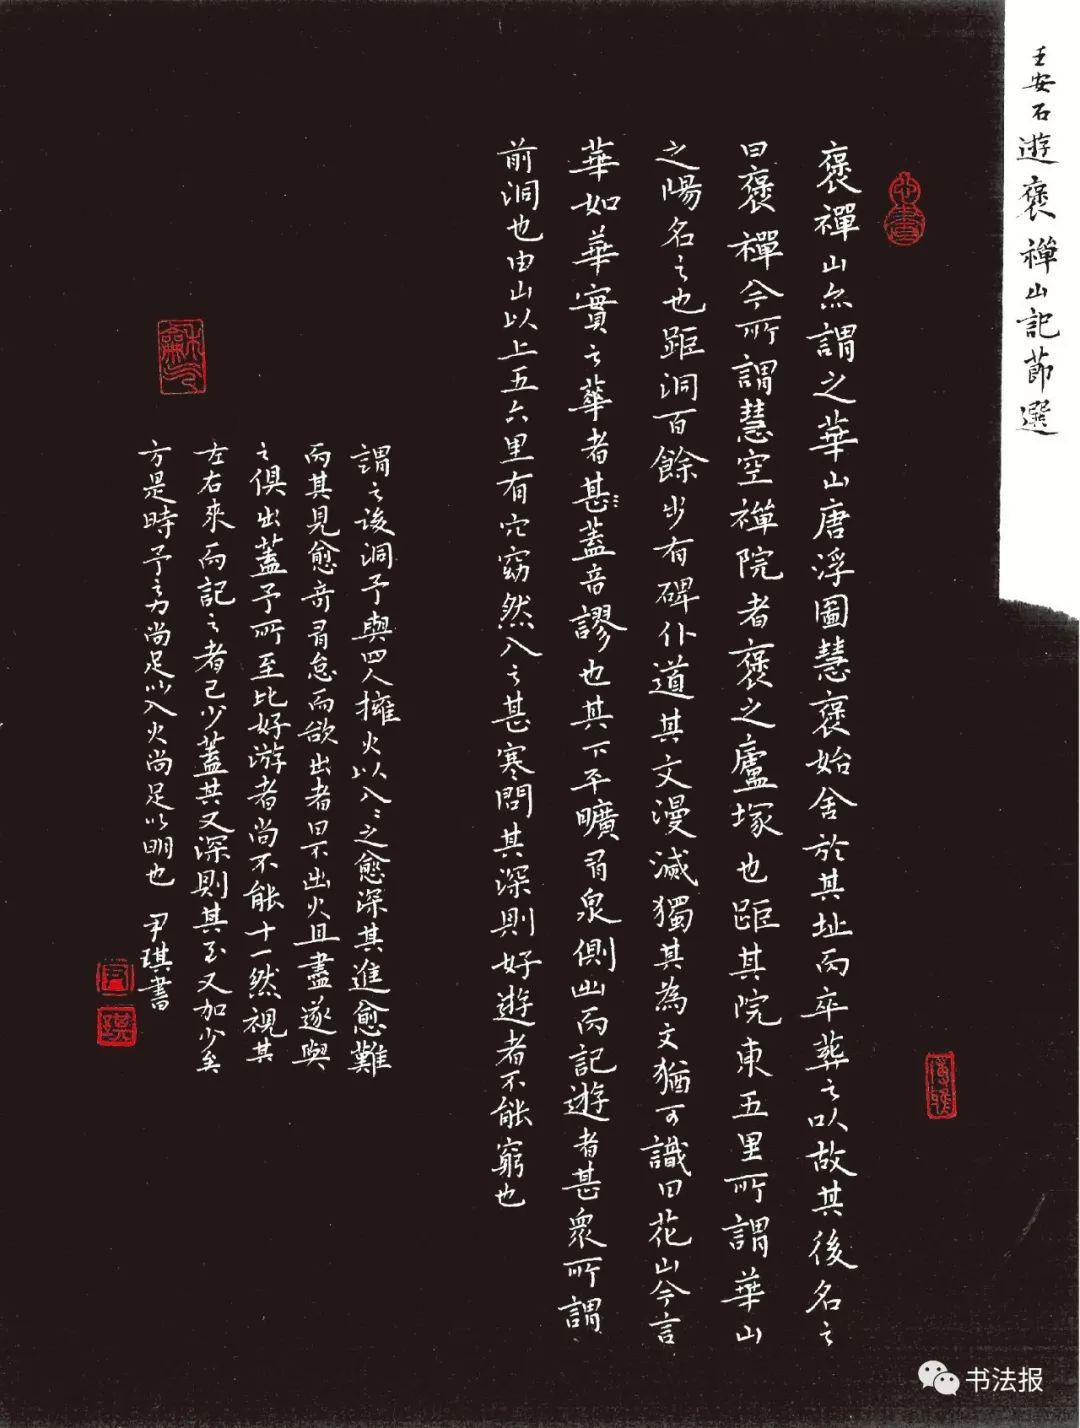 王安石遊褒禪山記節選
褒禪山亦謂之華山唐浮圖慧褒始舍於其址而卒葬之以故其後名之
曰褒禪今所謂慧空禪院者褒之廬塚也距其院東五里所謂華山
之陽名之也距洞百餘步有碑仆道其文漫滅獨其為文猶可識曰花山今言
華如華實之華者甚蓋音謬也其下平曠有泉側出而記遊者甚衆所謂
前洞也由山以上五六里有穴窈然入之甚寒問其深則好遊者不能窮也
謂之後洞予與四人擁火以入〻之愈深其進愈難
而其見愈奇有怠而欲出者曰不出火且盡遂與
之俱出蓋予所至比好游者尚不能十一然視其
左右來而記之者已少蓋其又深則其至又加少矣
方是時予之力尚足以入火尚足以明也 尹琪書
书法报